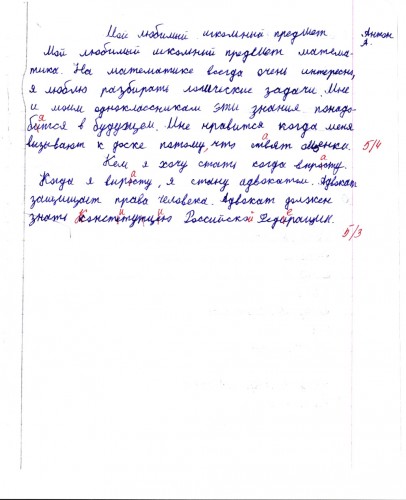 Мой любимый школьный предмет
Антон
А.
Мой любимый школьный предмет матема-
тика. На математике всегда очень интересно,
я люблю разбирать логические задачи. Мне
и моим одноклассникам эти знания понадо-
бятся в будущем. Мне нравится когда меня
вызывают к доске потому, что ставят оценки.
5/4
Кем я хочу стать когда вырасту.
Когда я вырасту, я стану адвокатом. Адвокат
защищает права человека. Адвокат должен
знать Конституцию Российской Федерации.
5/3